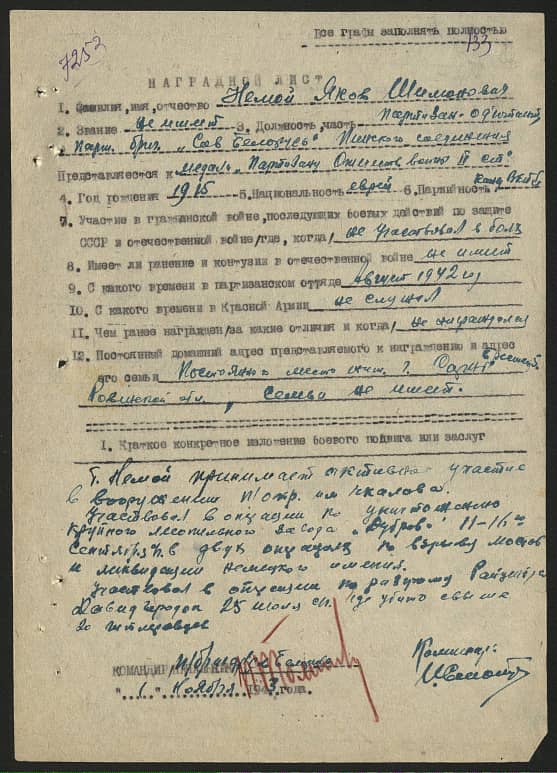 Все графы заполнять полностью
7252
133
НАГРАДНОЙ ЛИСТ
1. Фамилия, имя, отчество Немой Яков Шимоновая
2. Звание не имеет 3. Должность, часть партизан-
Парт. бриг. "Сов Белорусь" Пинского соединения
Представляется к медаль "Партизану Отечеств войны II ст"
4. Год рождения 1915 5. Национальность еврей 6. Партийность канд ВКП(б)
7. Участие в гражданской войне, последующих боевых действий по защите
СССР и отечественной войне/где, когда/ не участвовал в боях
8. Имеет ли ранение и контузии в отечественной войне не имеет
9. С какого времени в партизанском отряде Август 1942 год
10. С какого времени в Красной Армии не служил
11. Чем ранее награжден/за какие отличия и когда/ не награждался
12. Постоянный домашний адрес представляемого к награждению и адрес
его семьи Постоянное место жит. г.
Ровенской обл, семьи не имеет.
1. Краткое конкретное изложение боевого подвига или заслуг
т. Немой принимает активное участие
в вооружении п/отр. им Чкалова.
Участвовал в операции по уничтожению
крупного лесопильного завода "Дуброво" 11-16го
Сентября в двух операциях по взрыву мостов
и ликвидации немецкого имения.
Участвовал в операции по разгрому Райцентра
Давидгородок 25 июля с/г. где убито свыше
20 гитлеровцев
КОМАНДИР
Комиссар:
"1" Ноября 1943 года.